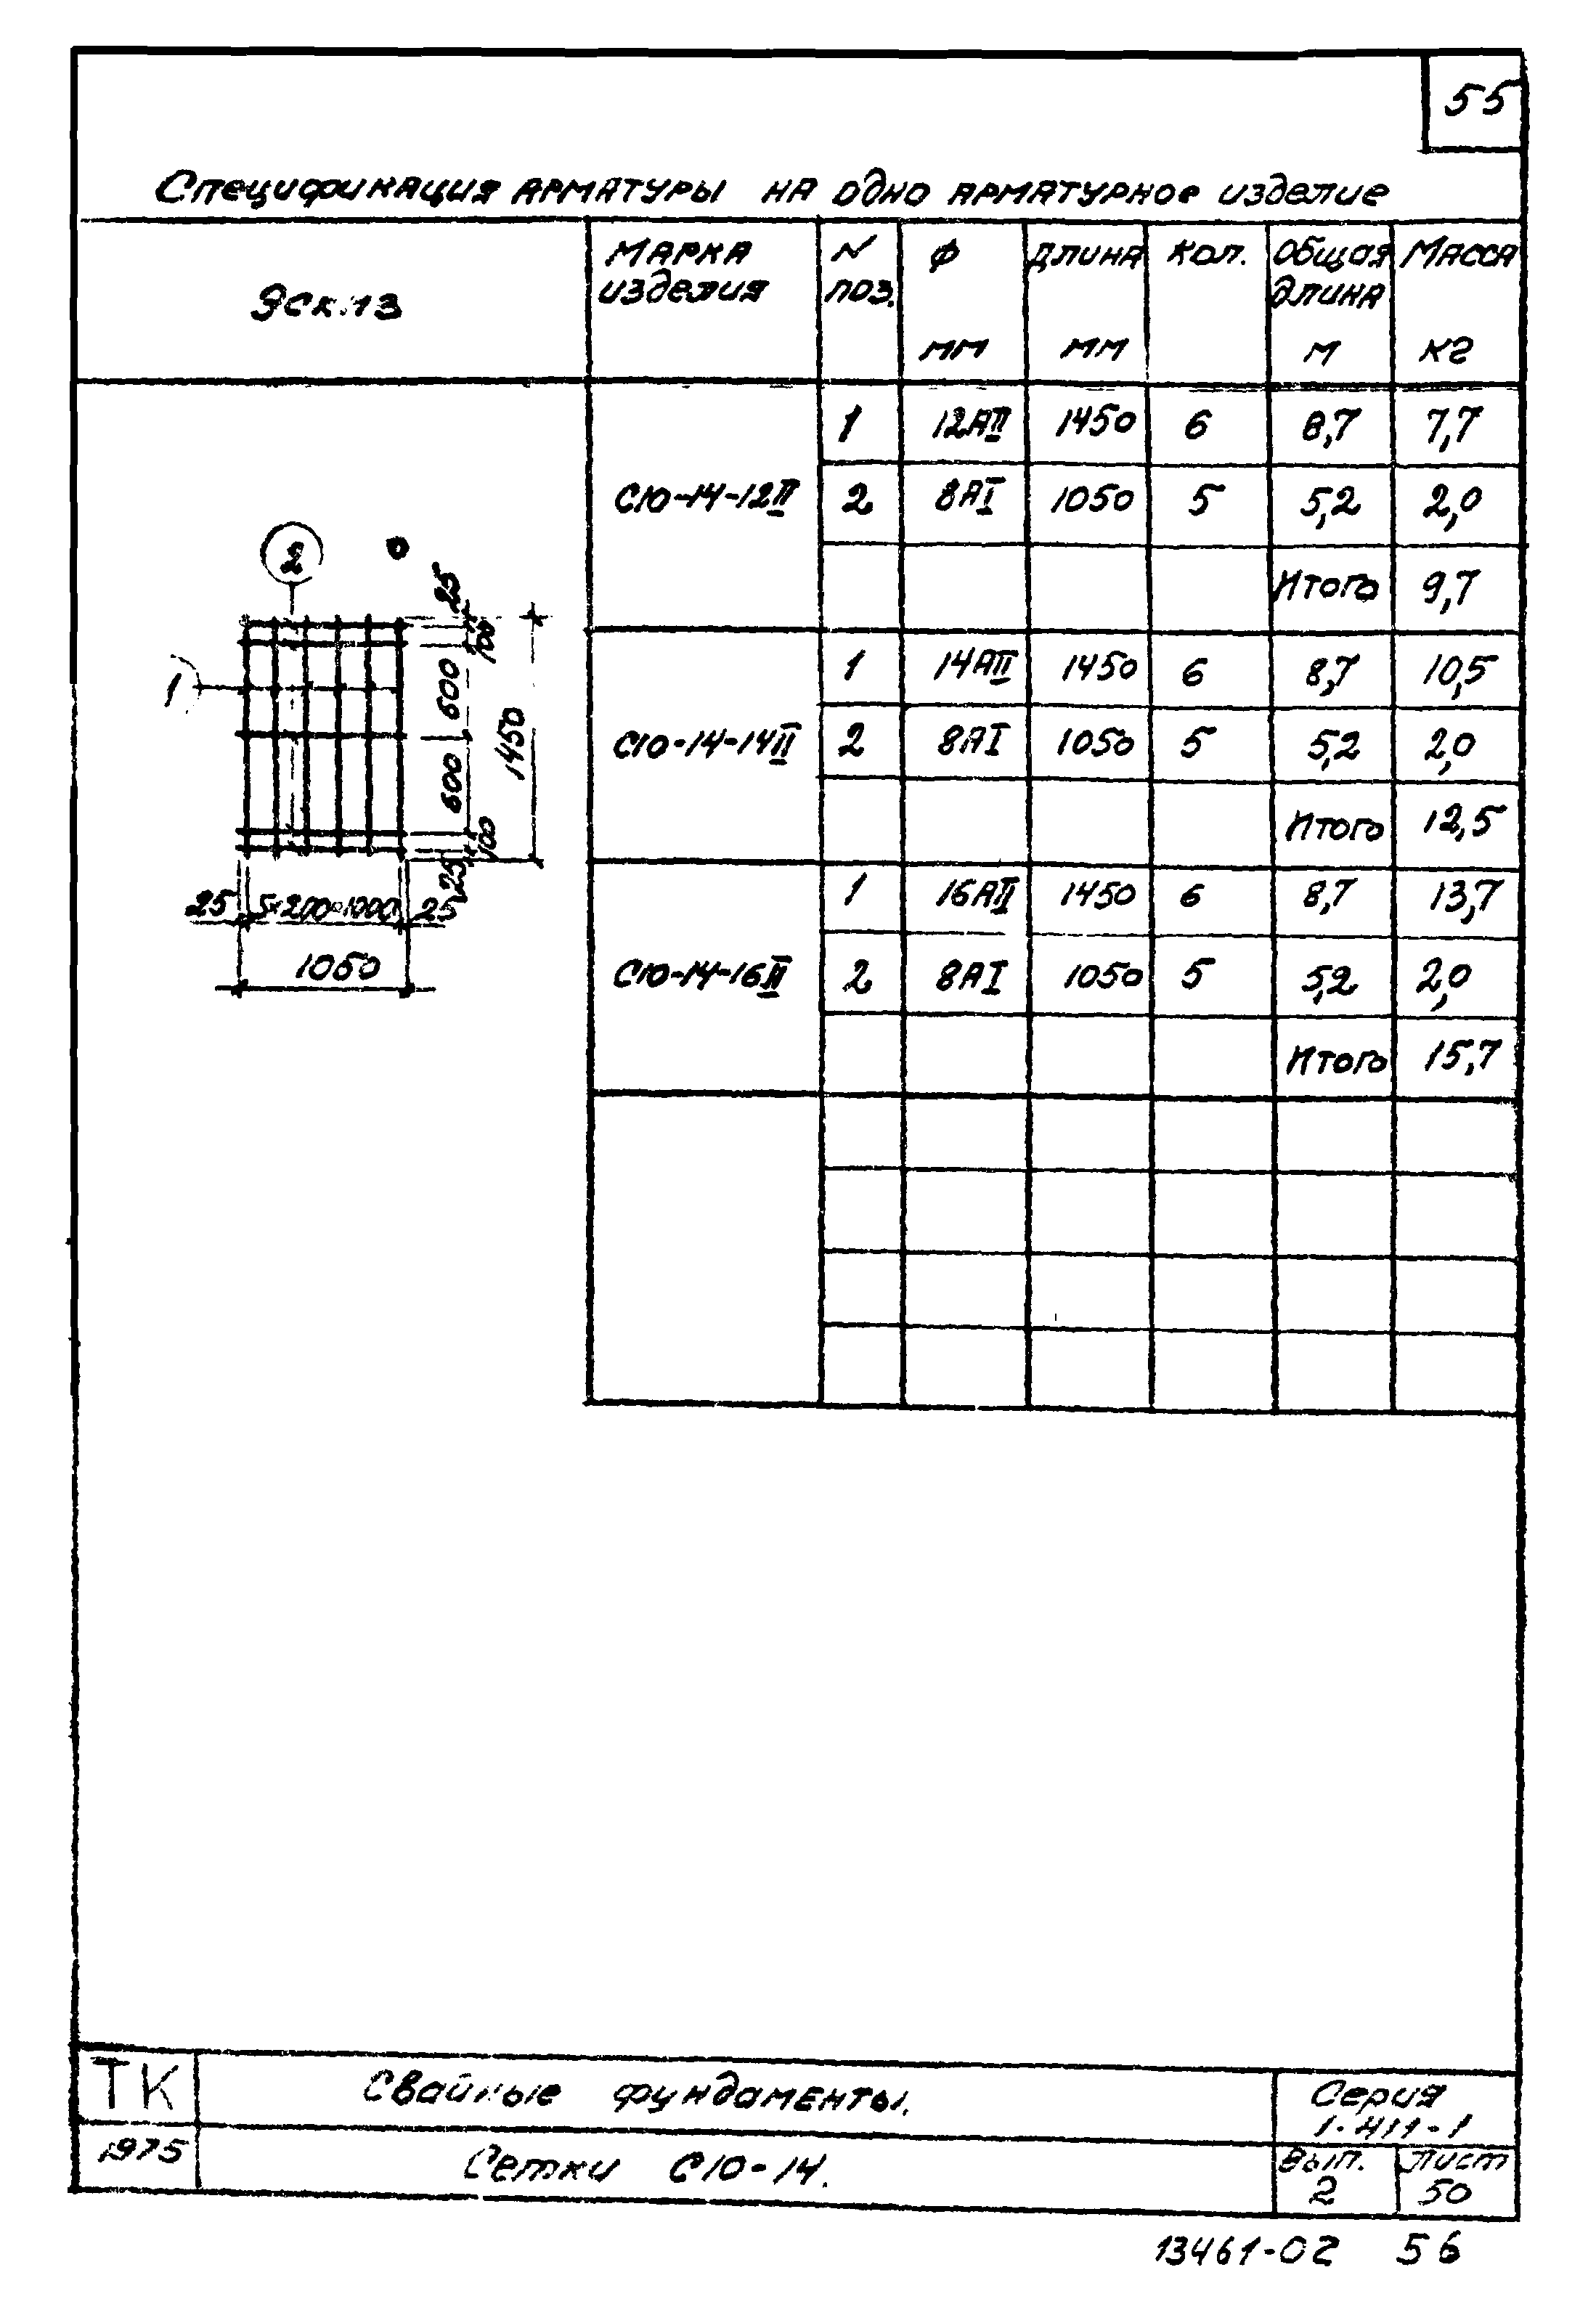 55
Спецификация арматуры на одно арматурное изделие
Эскиз
Марка изделия
N поз.
Ф мм
Длина мм
Кол.
Общая длина м
Масса кг
С10-14-12II
1 12АII 1450 6 8,7 7,7
2 8АI 1050 5 5,2 2,0
Итого 9,7
С10-14-14II
1 14АII 1450 6 8,7 10,5
2 8АI 1050 5 5,2 2,0
Итого 12,5
С10-14-16II
1 16АII 1450 6 8,7 13,7
2 8АI 1050 5 5,2 2,0
Итого 15,7
2
1
25
100
600
600
100
25
1450
25 5×200=1000 25
1050
ТК
1975
Свайные фундаменты.
Сетки С10-14.
Серия
1-411-1
Вып.
2
Лист
50
13461-02 56